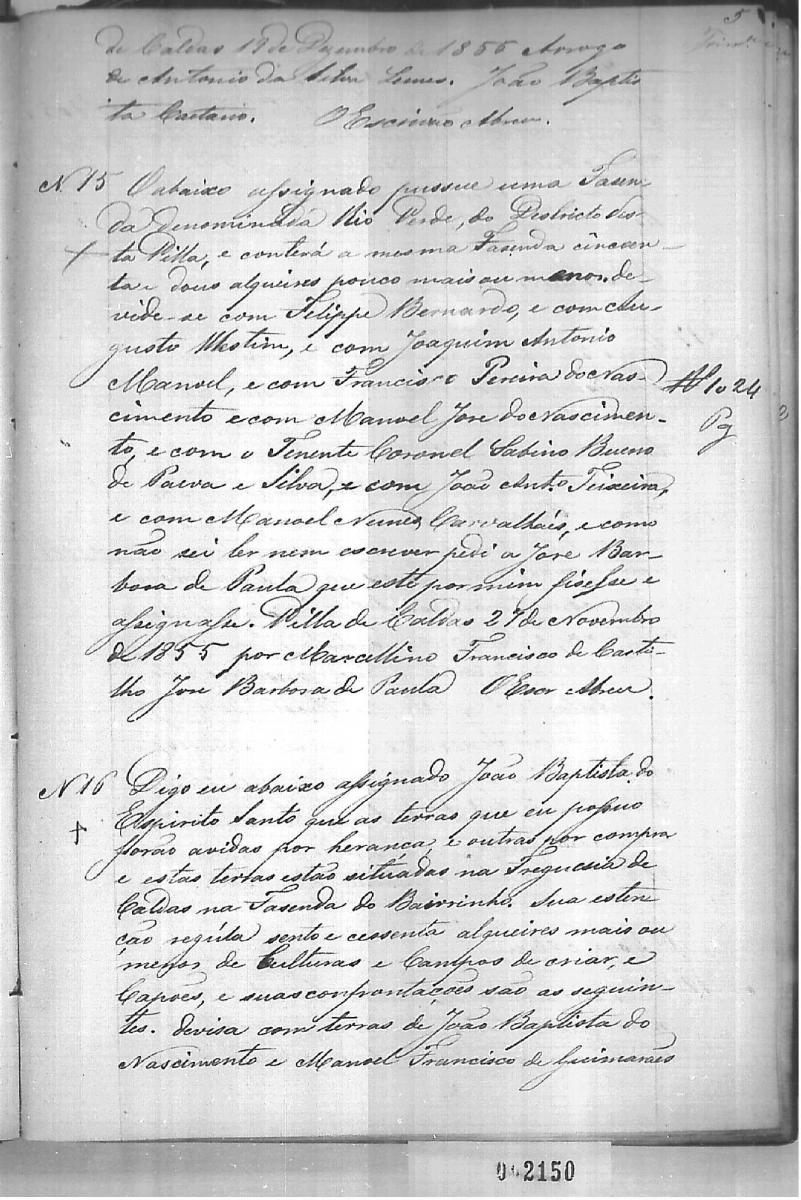 5
de Caldas 19 de Dezembro de 1855 Arrogo
de Antonio da Silva Lemes. João Baptis
ta Caetano. O Escrivão Abreu.
N. 15 O abaixo assignado pussue uma Fasen
da denominada Rio Verde, do Districto des
ta Villa, e conterá a mesma Fasenda cincoen-
ta e dous alqueires pouco mais ou menos. de-
vide-se com Felippe Bernardo, e com Au-
gusto Westim, e com Joaquim Antonio
Manoel, e com Francisco Pereira do Nas-
cimento e com Manoel Jose do Nascimen-
to, e com o Tenente Coronel Sabino Bueno
de Paeva e Silva, e com João Antº. Teixeira,
e com Manoel Nunes Carvalhais, e como
não sei ler nem escrever pedi a Jose Bar-
bosa de Paula que este por mim fisesse e
assignasse. Villa de Caldas 27 de Novembro
de 1855 por Marcellino Francisco de Casti-
lho Jose Barbosa de Paula O Escr Abreu.
1024
Pg
N 16 Digo eu abaixo assignado João Baptista do
Espirito Santo que as terras que eu possuo
forão avidas por herança, e outras por compra
e estas terras estão situadas na Freguesia de
Caldas na Fasenda do Bairrinho. Sua esten
ção regúla sento e cessenta alqueires mais ou
menos de Culturas e Campos de criar, e
Capões, e suas confrontações são as seguin-
tes. devisa com terras de João Baptista do
Nascimento e Manoel Francisco de Guimarães
002150